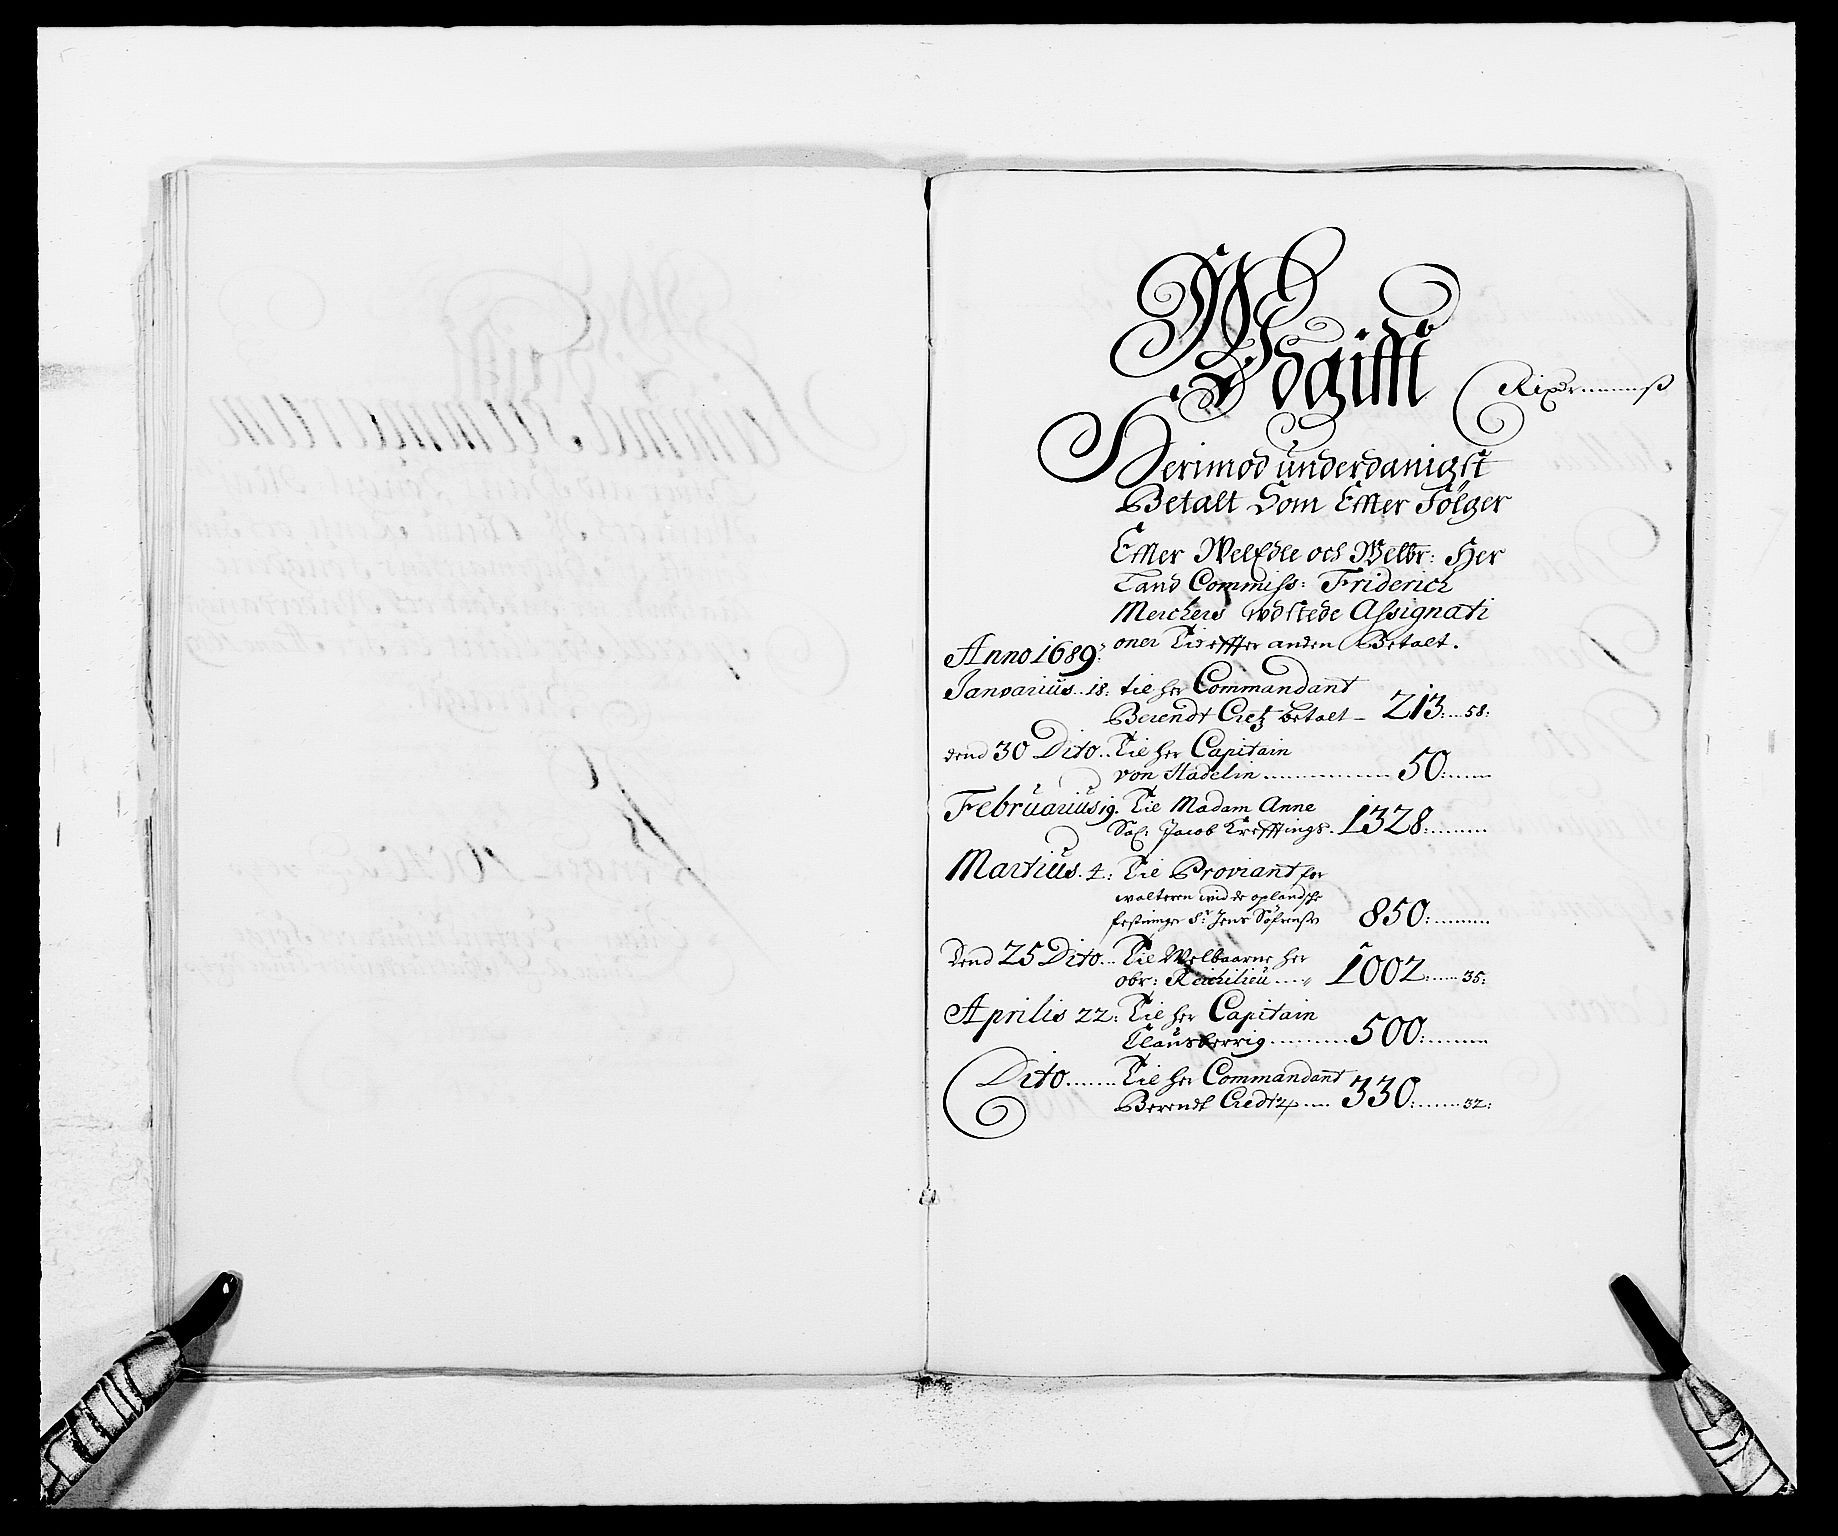 Wdgifft
Rixdr ß
Herimod underdanigst
Betalt Som Effter Fölger
Effter WelEdle och Welbr: Her
Land Commiss: Friderich
Merckers wdstede Assignati
oner Tid effter anden Betalt.
Anno 1689:
Janvarius..18: til her Commandant
Berendt Cretz betalt 213:...58:
dend 30 Dito.. Til her Capitain
von Stadelin ........ 50:......
Februarius 19. Til Madam Anne
Sal: Jacob Krefftings. 1328:.......
Martius. 4: Til Proviant for
walteren wid de oplandske
festninger Sr: Jens Söfrensøn 850:.......
Dend 25 Dito... Til Welbaarne her
obr: Reichlieu.... 1002:.....35:
Aprilis 22: Til her Capitain
Clausberrig.........500:........
Dito....... Til her Commandant
Berendt Credtz..... 330:......32: